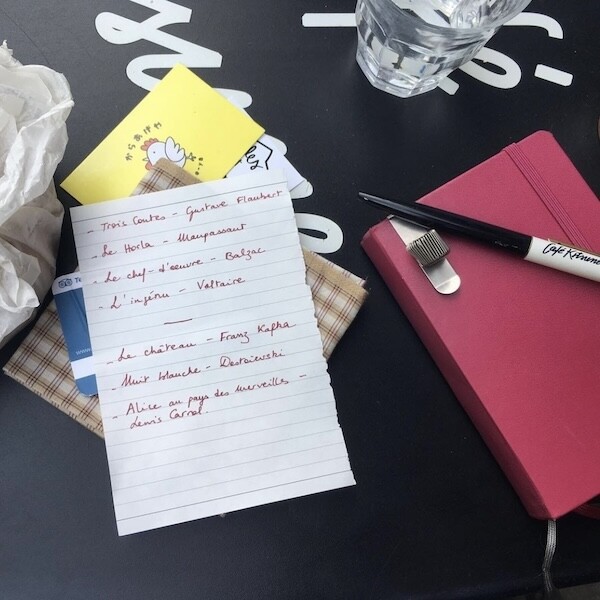 からあげや
- Trois Contes - Gustave Flaubert
- Le Horla - Maupassant
- Le chef-d'oeuvre - Balzac
- L'ingénu - Voltaire
- Le château - Franz Kafka
- Nuit blanche - Dostoïevski
- Alice au pays des merveilles -
Lewis Carrol.
Café Kitsuné